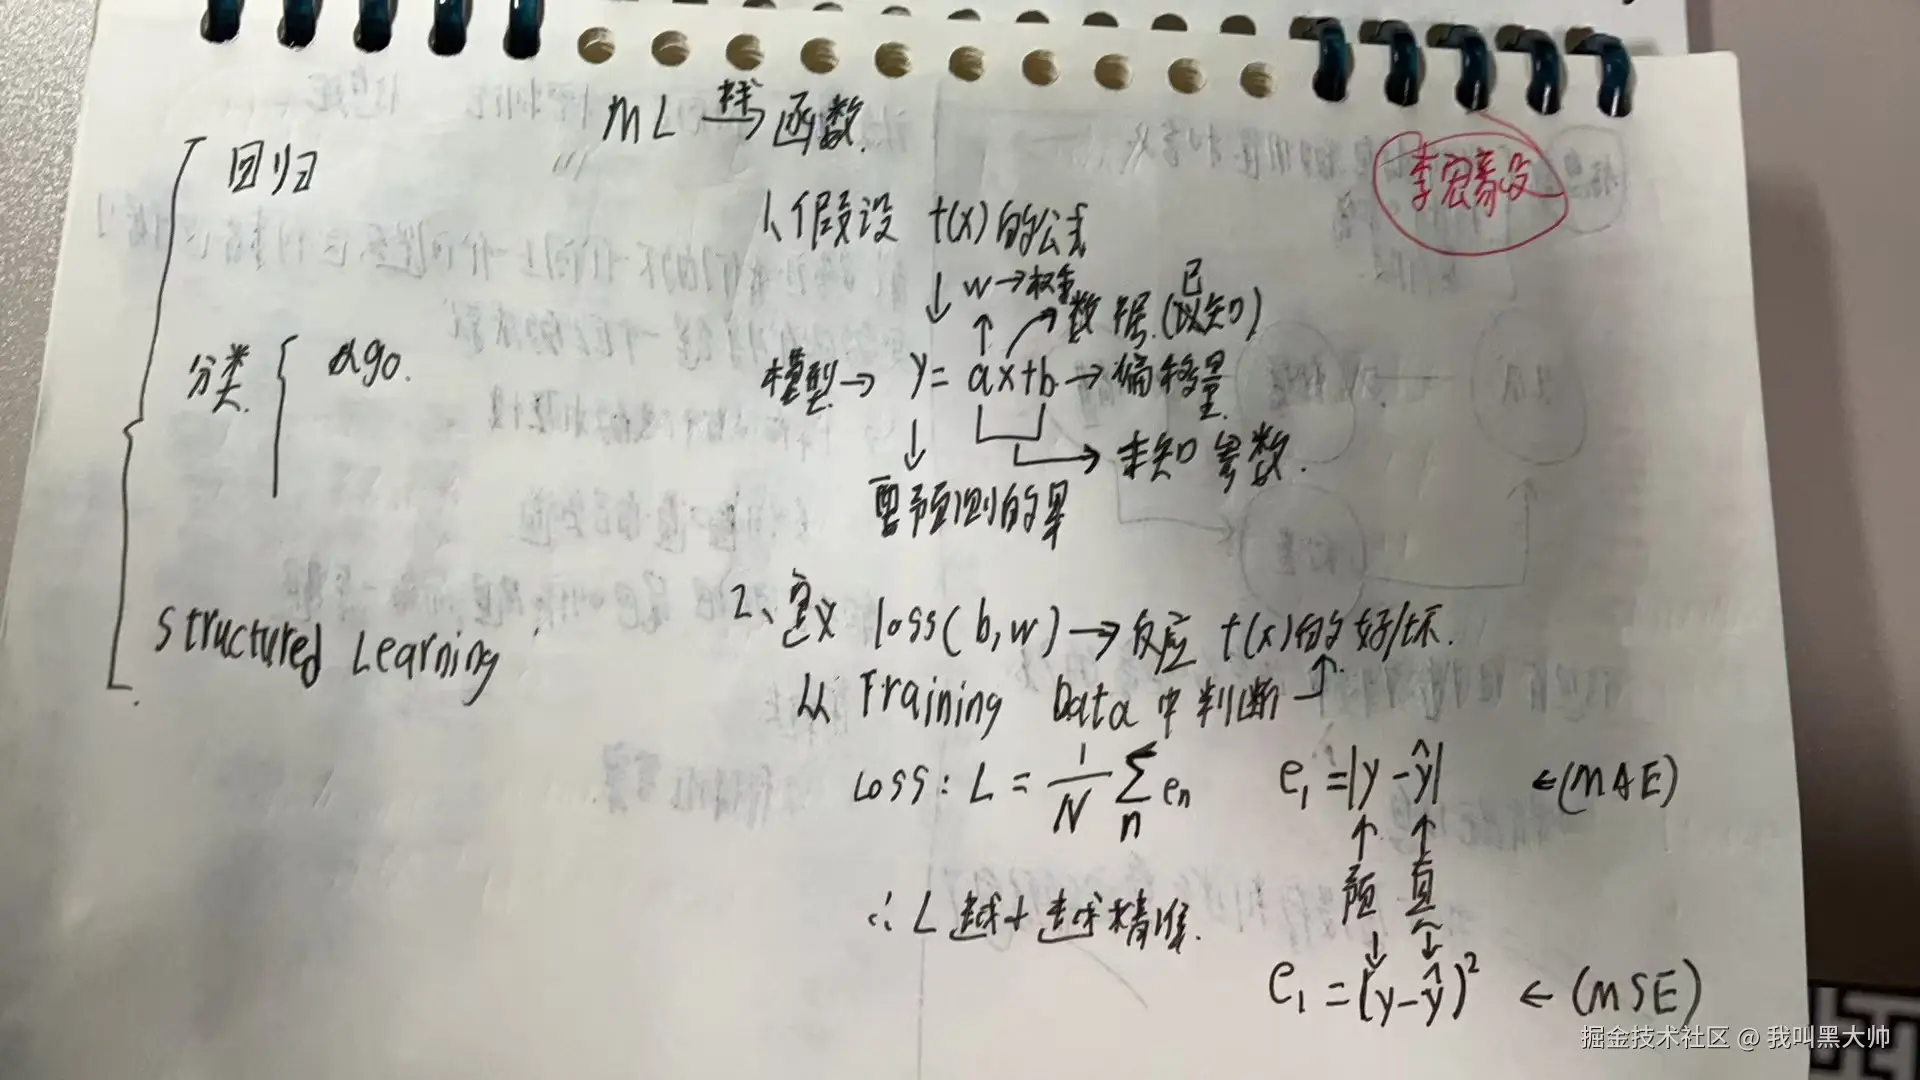 ML 找→ 函数.
李宏毅
回归
1、假设 f(x)的公式
↓ w→权重
数据.(已知)
分类. { ago.
模型→ y = ax+b → 偏移量.
→ 未知参数.
要预测的果
2、定义 loss(b,w)→反应 f(x)的好/坏.
Structured Learning
从 Training Data 中判断
Loss: L = 1/N Σn en e1 =|y-ŷ| ←(MAE)
预 真
∴ L 越小 越精准.
e1 =(y-ŷ)² ←(MSE)
掘金技术社区 @ 我叫黑大帅